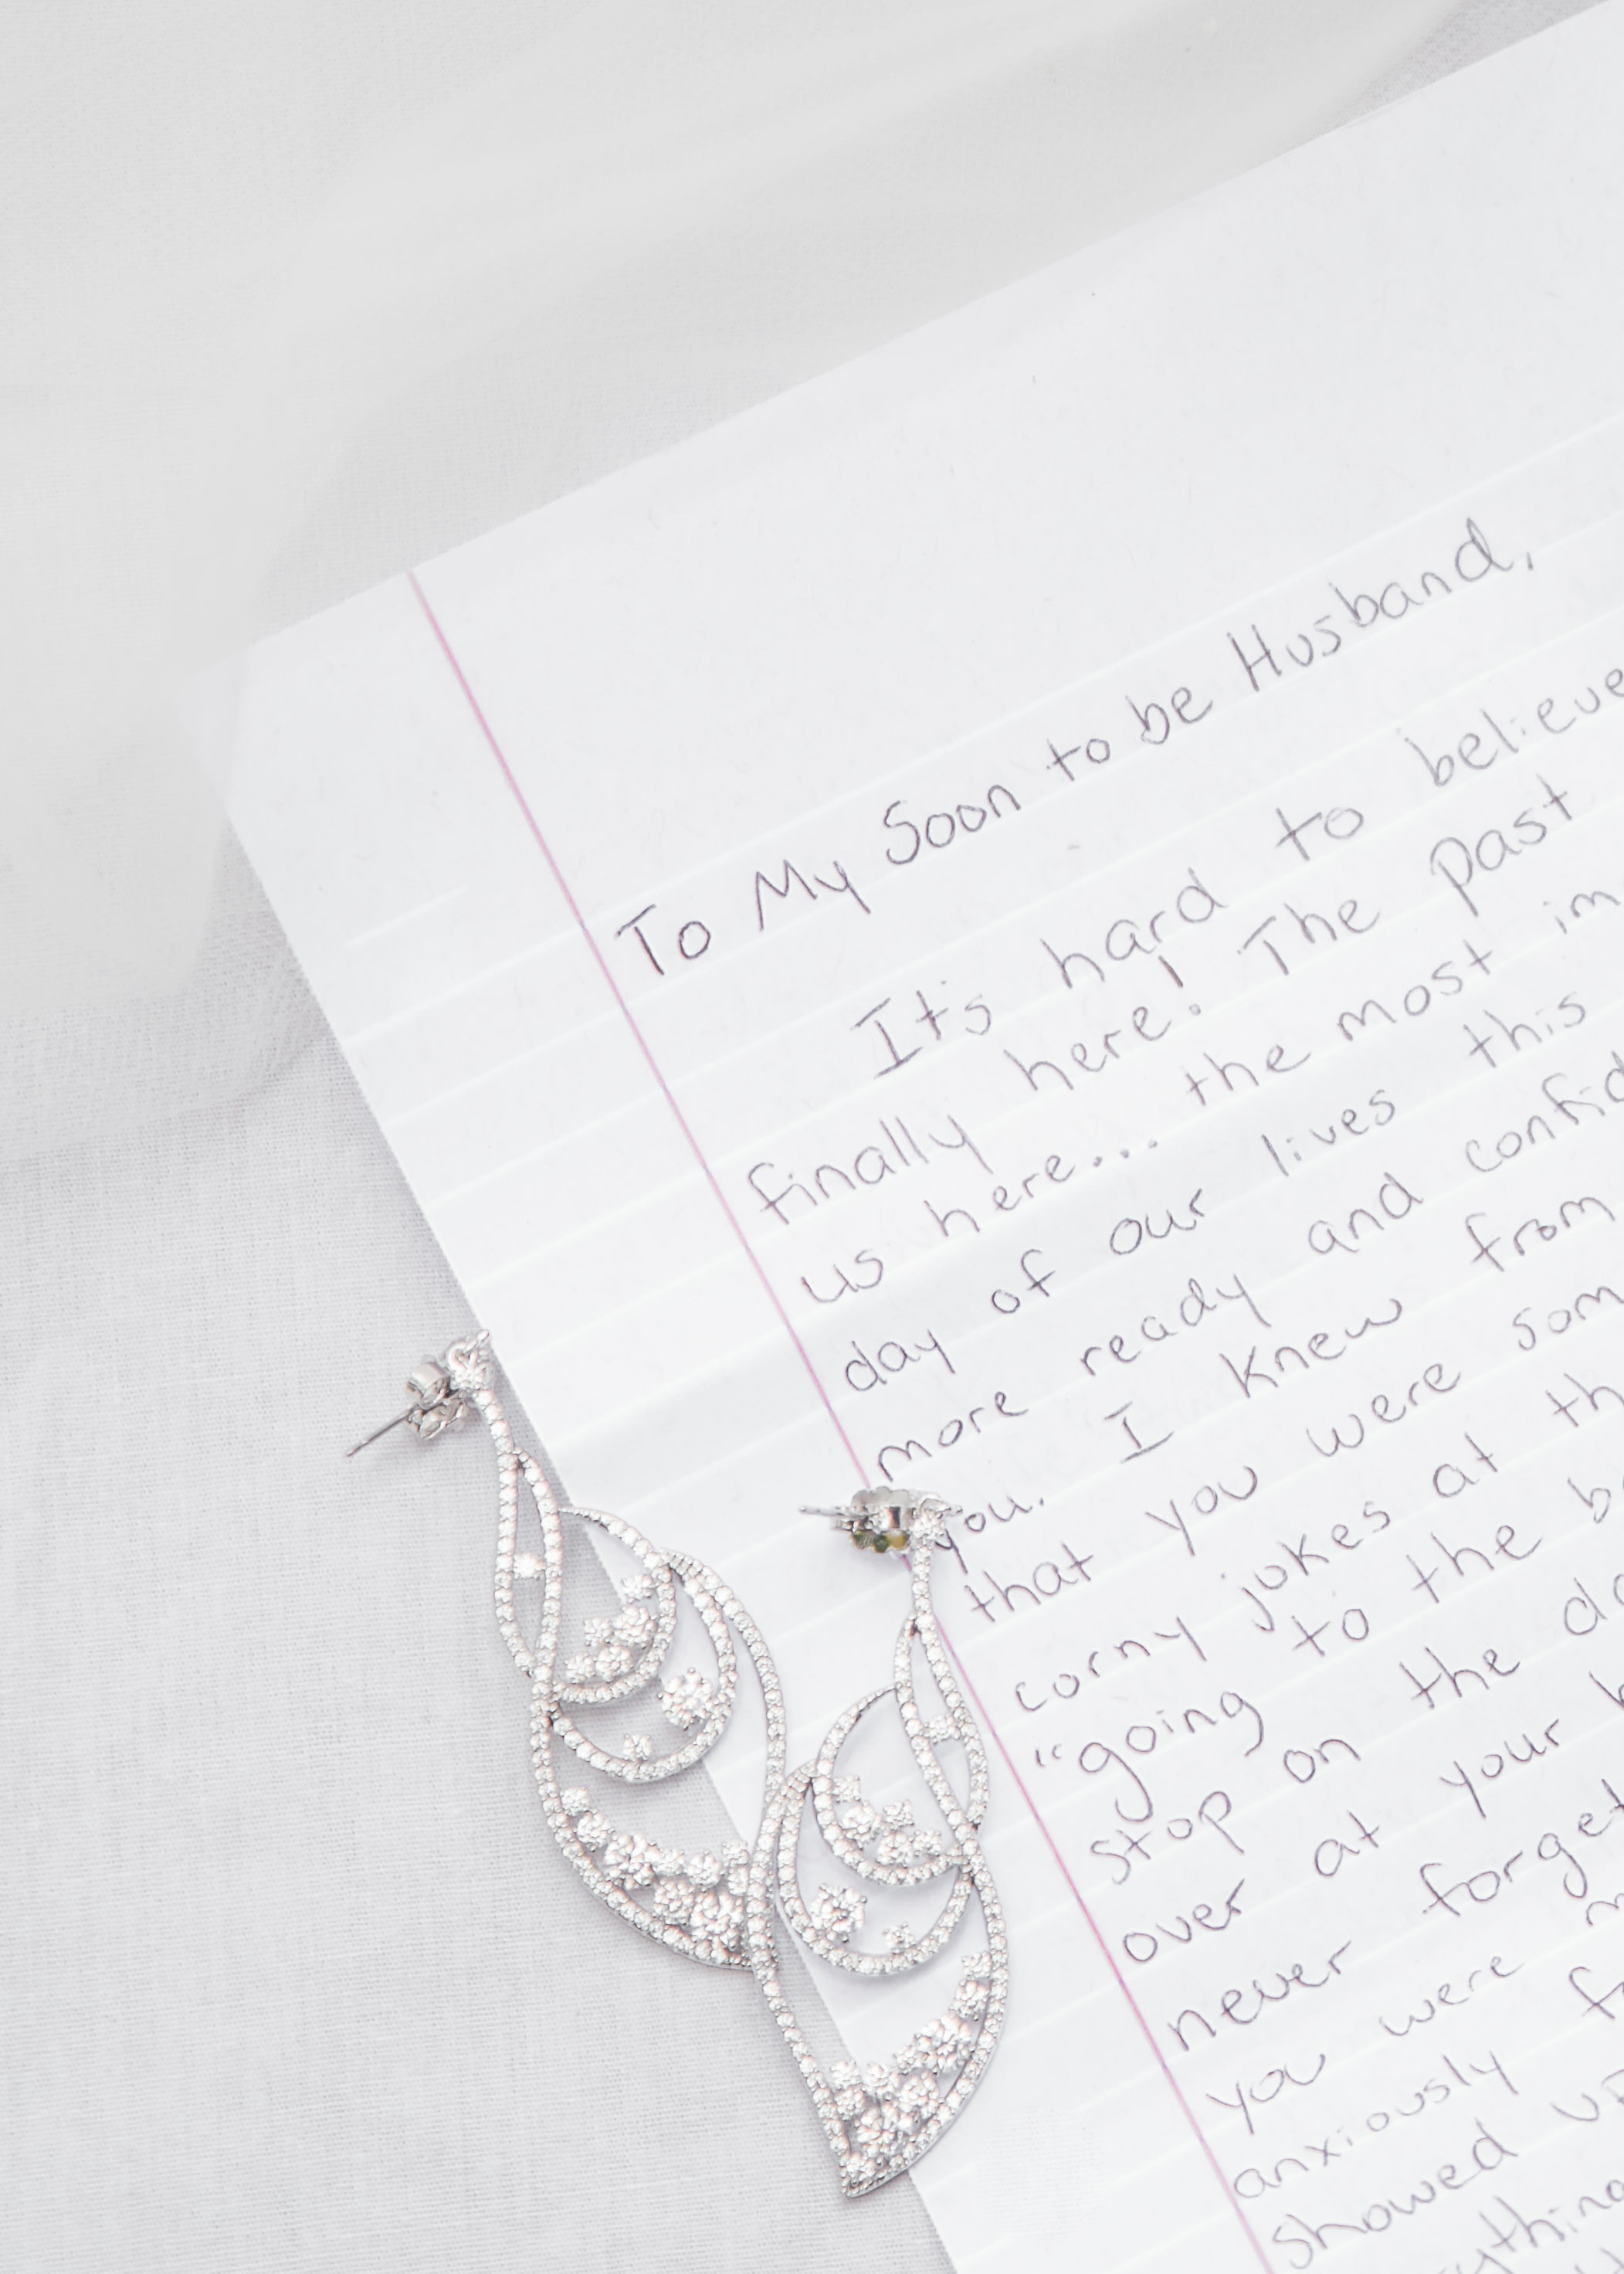 To My Soon to be Husband,
It's hard to believe
finally here! The past
us here... the most im
day of our lives this
more ready and confid
you. I knew from
that you were som
corny jokes at th
"going to the b
stop on the da
over at your b
never forget
you were m
anxiously f
showed up
ything